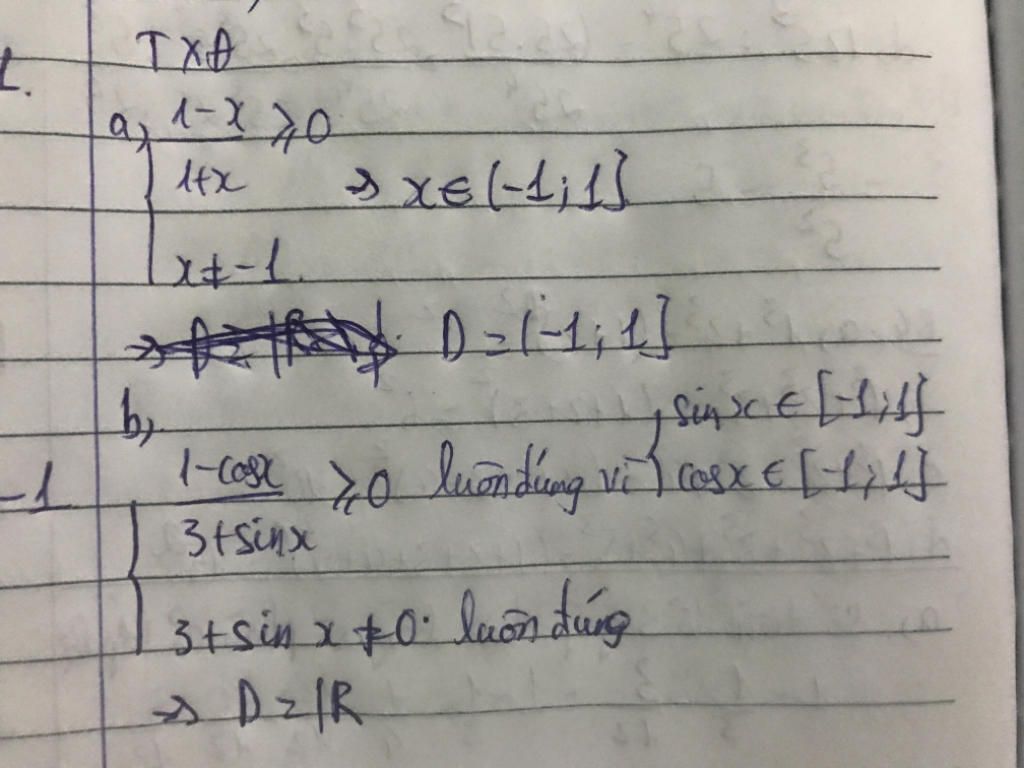 1.
TXĐ
a, 1-x / 1+x ≥ 0
x ≠ -1.
→ x ∈ (-1; 1]
→ D = (-1; 1]
b,
1-cosx / 3+sinx ≥ 0 luôn đúng vì { sin x ∈ [-1; 1]
cosx ∈ [-1; 1]
-1
3+sin x ≠ 0. luôn đúng
→ D = |R